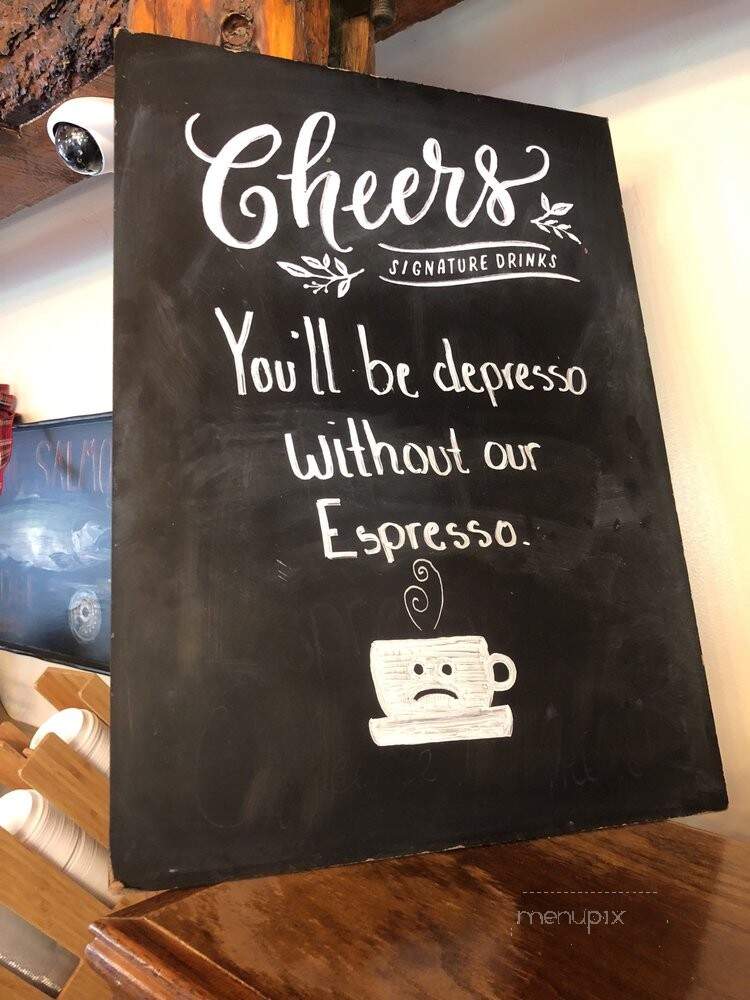 Cheers
SIGNATURE DRINKS
You'll be depresso
without our
Espresso.
SALMO
menupix